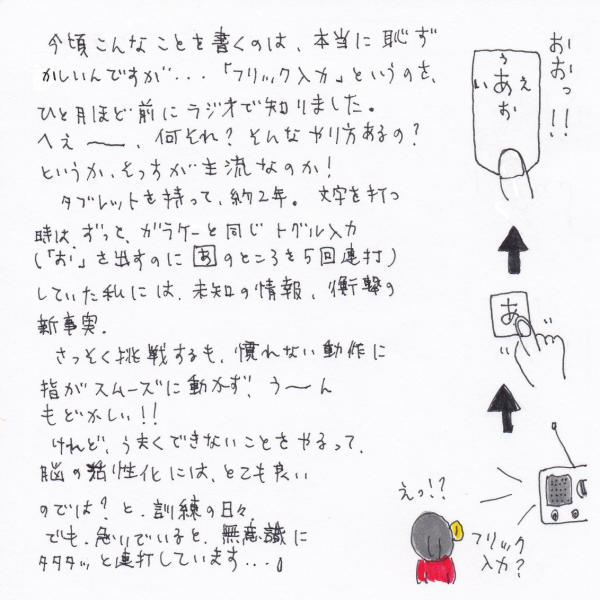 今頃こんなことを書くのは、本当に恥ず
かしいんですが...「フリック入力」というのを、
ひと月ほど前にラジオで知りました。
へぇ〜、何それ？そんなやり方あるの？
というか、そっちが主流なのか！
タブレットを持って、約2年。文字を打つ
時は、ずっと、ガラケーと同じトグル入力
(「お」を出すのにあのところを5回連打)
していた私には、未知の情報、衝撃の
新事実.
さっそく挑戦するも、慣れない動作に
指がスムーズに動かず、う〜ん
もどかしい！！
けれど、う夫くできないことをやるって、
脳の活性化には、とても良い
のでは？と、訓練の日々.
でも、急いでいると、無意識に
タタタッと連打しています...。
おおっ!!
う
いあえ
お
あ
えっ!?
フリック
入力？